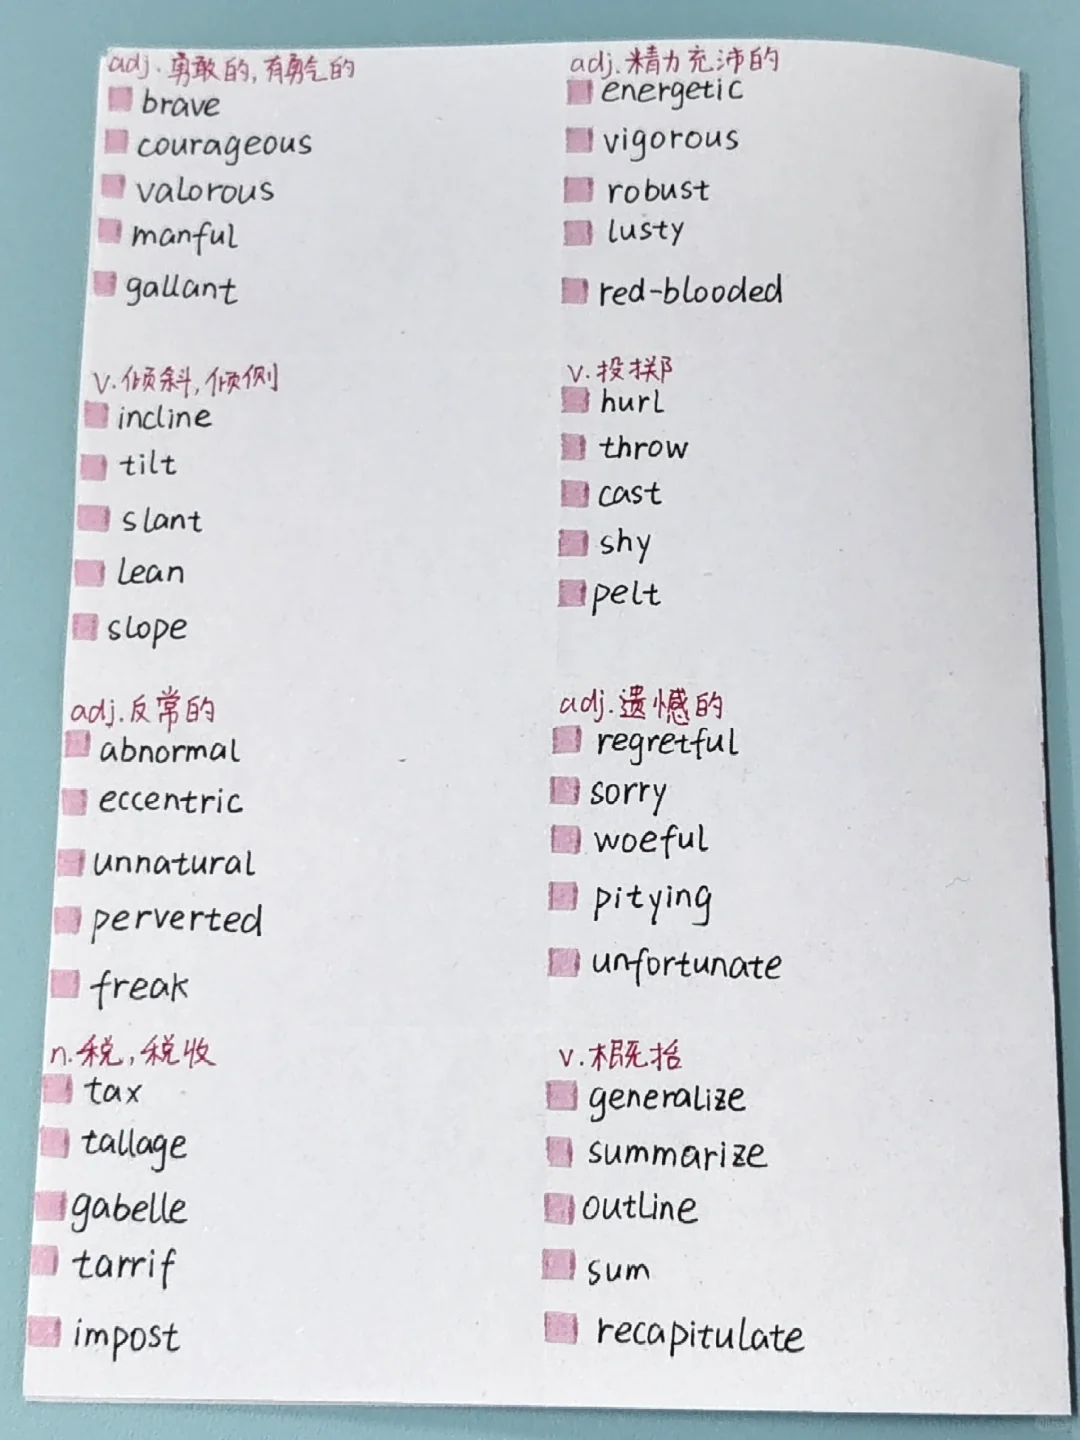 adj.勇敢的,有勇气的
brave
courageous
valorous
manful
gallant
adj.精力充沛的
energetic
vigorous
robust
lusty
red-blooded
v.倾斜,倾侧
incline
tilt
slant
lean
slope
v.投掷
hurl
throw
cast
shy
pelt
adj.反常的
abnormal
eccentric
unnatural
perverted
freak
adj.遗憾的
regretful
sorry
woeful
pitying
unfortunate
n.税,税收
tax
tallage
gabelle
tarrif
impost
v.概括
generalize
summarize
outline
sum
recapitulate